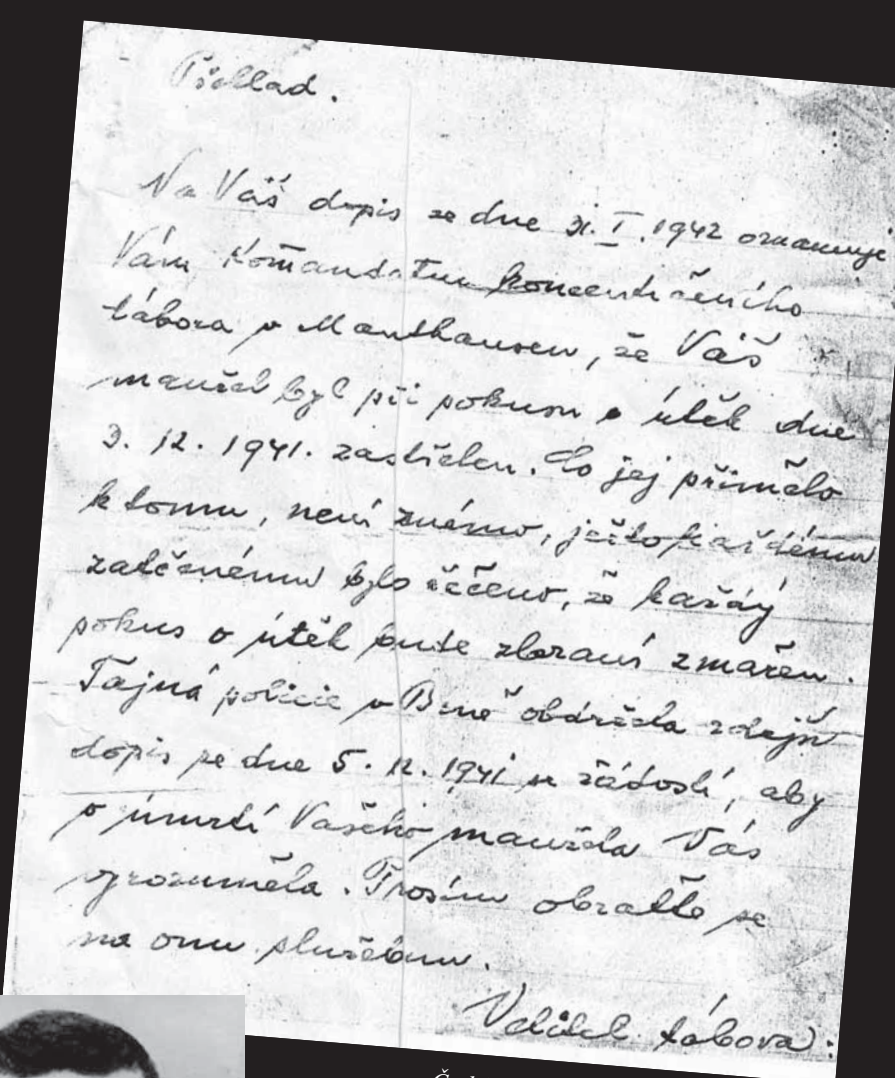 Překlad.
Na Váš dopis ze dne 31. I. 1942 oznamuje
Vám Komandatura koncentračního
tábora v Mauthausen, že Váš
manžel byl při pokusu o útěk dne
3. 12. 1941. zastřelen. Co jej přimělo
k tomu, není známo, ježto každému
zatčenému bylo řečeno, že každý
pokus o útěk bude zbraní zmařen.
Tajná policie v Brně obdržela zdejší
dopis ze dne 5. 12. 1941 se žádostí, aby
o úmrtí Vašeho manžela Vás
vyrozuměla. Prosím obraťte se
na onu služebnu.
Velitel tábora: